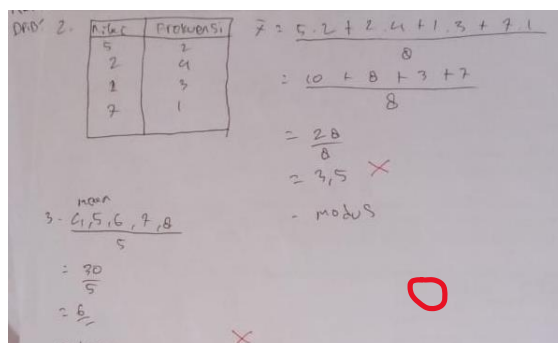 2.
Nilai Frekuensi
5 2
2 4
1 3
7 1
x̄ = 5.2 + 2.4 + 1.3 + 7.1
8
= 10 + 8 + 3 + 7
8
= 28
8
= 3,5
- modus
mean
3. 4,5,6,7,8
5
= 30
5
= 6